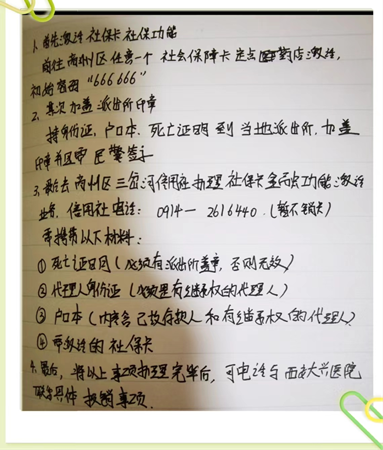 1、首先激活社保卡社保功能
前往商州区任意一个社会保障卡定点医药店激活,
初始密码"666666"
2、其次加盖派出所印章
持身份证,户口本,死亡证明到当地派出所,加盖
印章并区要民警签字
3、最后去商州区三岔河信用社办理社保卡金融功能激活
业务,信用社电话:0914-2616440.(暂不销卡)
需携带以下材料:
①死亡证明(必须有派出所盖章,否则无效)
②代理人身份证(必须是有继承权的代理人)
③户口本(内容含已故存款人和有继承权的代理人)
④需激活的社保卡
4、最后,将以上事项办理完毕后,可电话与西安大兴医院
联系具体报销事项.